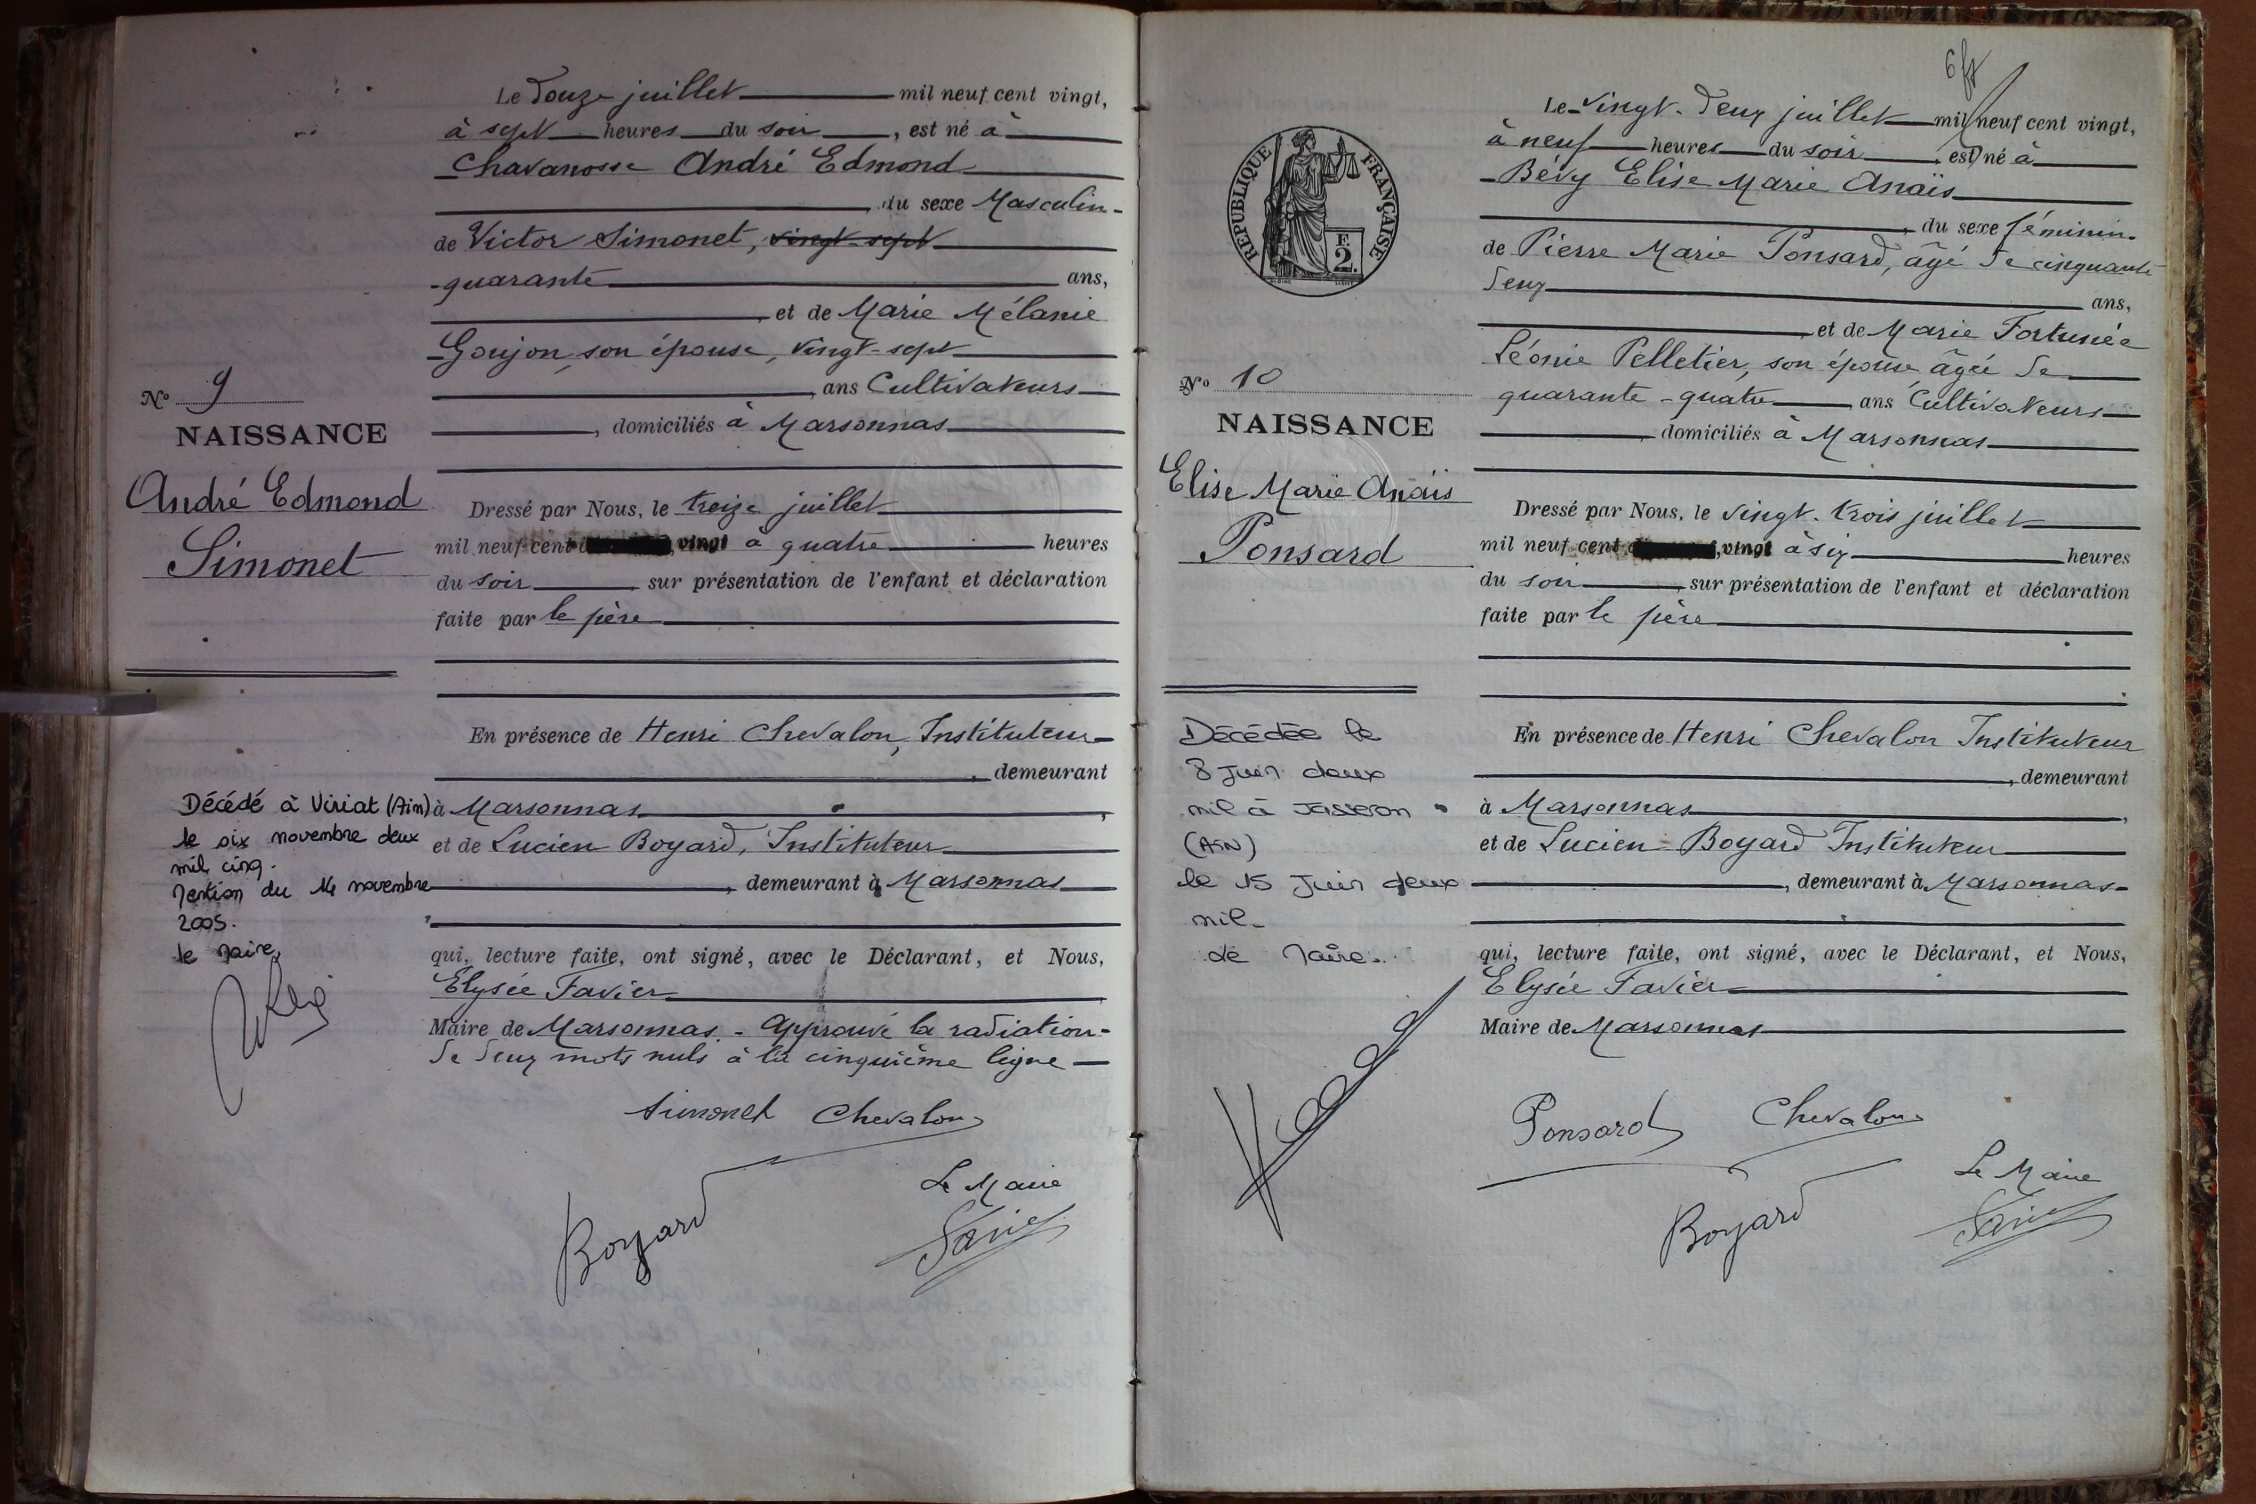 Le douze juillet mil neuf cent vingt,
à sept heures du soir, est né à
Chavanosse André Edmond
du sexe Masculin
de Victor Simonet, vingt-sept
quarante ans,
et de Marie Mélanie
Goujon, son épouse, vingt-sept
ans Cultivateurs
, domiciliés à Marsonnas
N° 9
NAISSANCE
André Edmond
Simonet
Dressé par Nous, le treize juillet
mil neuf cent vingt à quatre heures
du soir, sur présentation de l'enfant et déclaration
faite par le père
En présence de Henri Chevalon, Instituteur
, demeurant
à Marsonnas
et de Lucien Boyard, Instituteur
, demeurant à Marsonnas
qui, lecture faite, ont signé, avec le Déclarant, et Nous,
Elysée Favier
Maire de Marsonnas. - Approuvé la radiation
de deux mots nuls à la cinquième ligne
Décédé à Viriat (Ain)
le six novembre deux
mil cinq.
Mention du 14 novembre
2005.
le Maire,
Simonet Chevalon
Boyard
Le Maire
Favier
Le vingt-deux juillet mil neuf cent vingt,
à neuf heures du soir, est né à
Bévy Elise Marie Anaïs
, du sexe féminin.
de Pierre Marie Ponsard, âgé de cinquante
deux ans,
et de Marie Fortunée
Léonie Pelletier, son épouse, âgée de
quarante-quatre ans Cultivateurs
, domiciliés à Marsonnas
RÉPUBLIQUE FRANÇAISE
F.
2.
N° 10
NAISSANCE
Elise Marie Anaïs
Ponsard
Dressé par Nous, le vingt-trois juillet
mil neuf cent, vingt à six heures
du soir, sur présentation de l'enfant et déclaration
faite par le père
En présence de Henri Chevalon Instituteur
, demeurant
à Marsonnas,
et de Lucien Boyard Instituteur
, demeurant à Marsonnas
qui, lecture faite, ont signé, avec le Déclarant, et Nous,
Elysée Favier
Maire de Marsonnas
Décédée le
8 Juin deux
mil à Jasseron
(Ain)
le 15 Juin deux
mil-
de Maire.
Ponsard Chevalon
Boyard
Le Maire
Favier